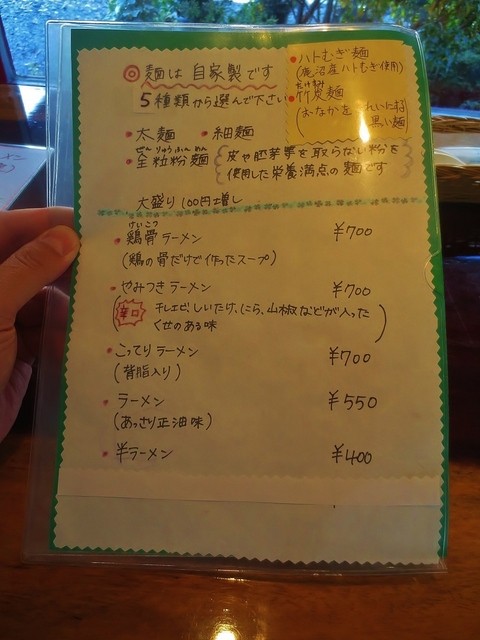 ◎麺は 自家製です
5種類から選んで下さい
・ハトむぎ麺
(鹿沼産ハトむぎ使用)
たけすみ
・竹炭麺
(おなかを きれいにする
黒い麺)
・太麺 ・細麺
ぜんりゅうふんめん
・全粒粉麺
皮や胚芽等を取らない粉を
使用した栄養満点の麺です
大盛り100円増し
けいこつ
・鶏骨ラーメン ¥700
(鶏の骨だけで作ったスープ)
・やみつきラーメン ¥700
辛口
(干しエビ、しいたけ、にら、山椒などが入った
くせのある味)
・こってりラーメン ¥700
(背脂入り)
・ラーメン ¥550
(あっさり正油味)
・半ラーメン ¥400